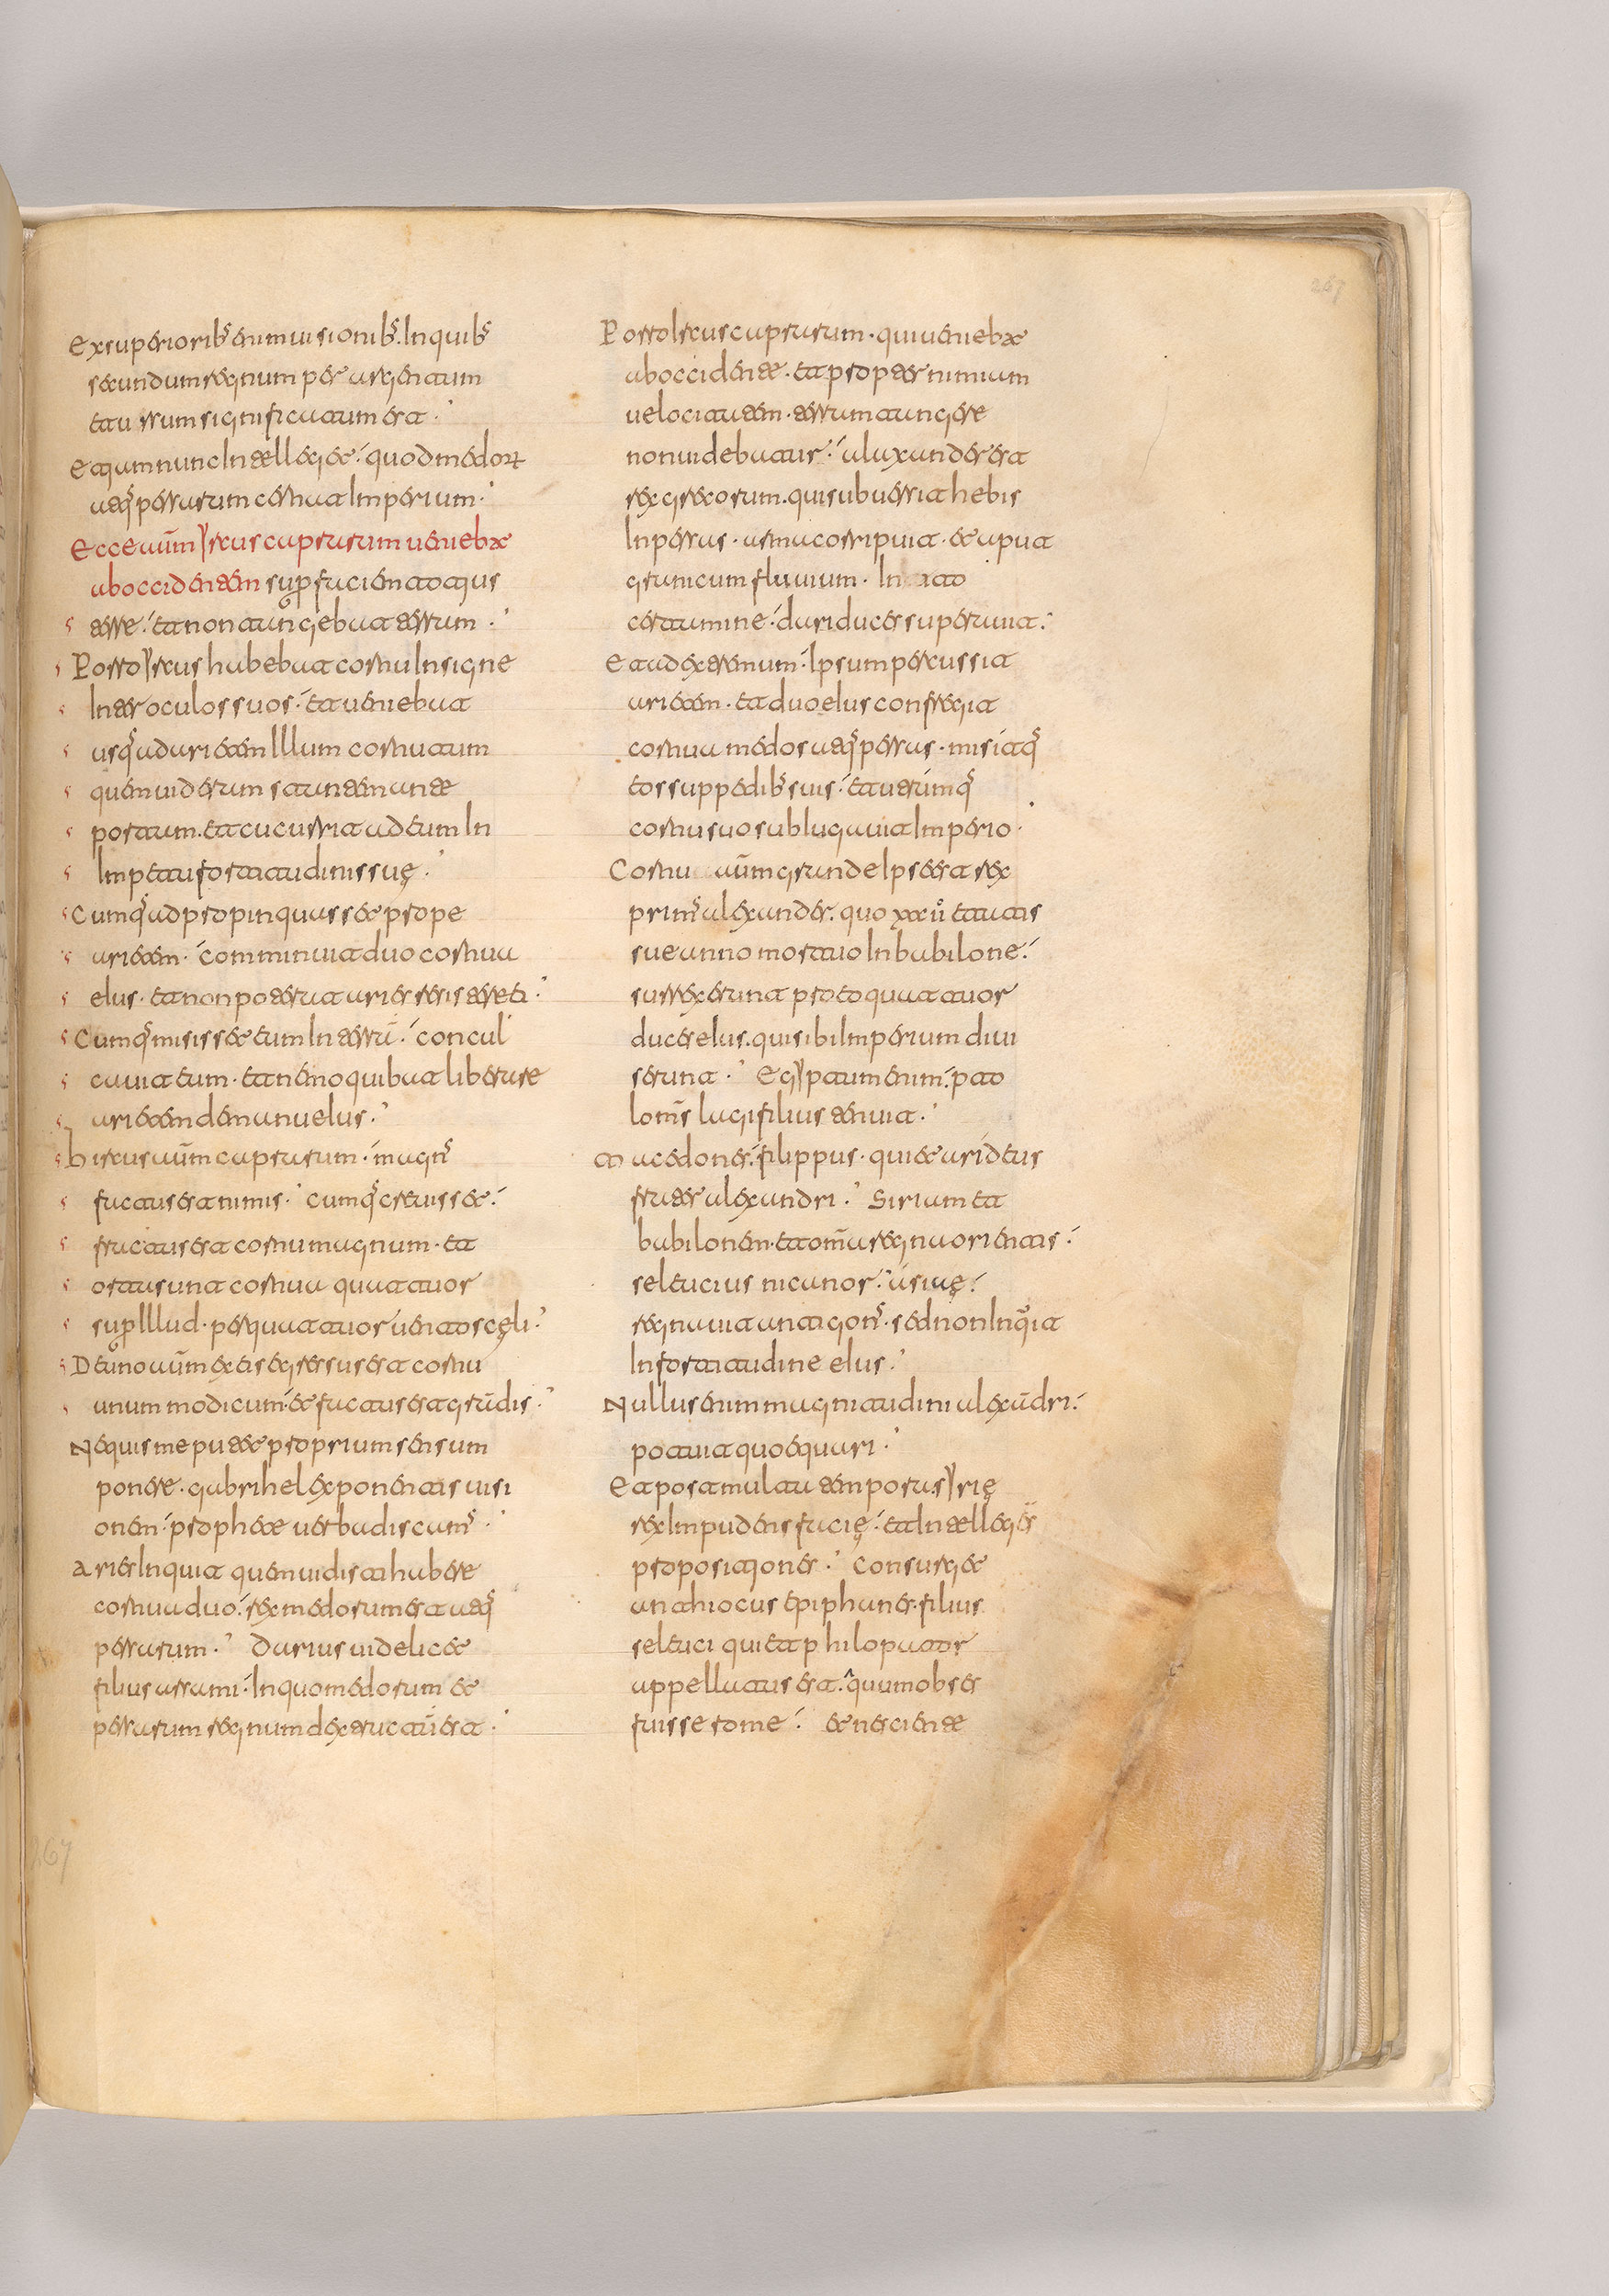 Ex superiorib; enim uisionib; In quib;
secundum regnum per argentum
et ursum significatum est.
Et qum nunc Intelleget quod medor̄
atq; persarum cernat Imperium.
Ecce aūm yrcus caprarum ueniebat
ab occidentem sup faciem totius
terre. et non tangebat terram.
Porro yrcus habebat cornu Insigne
Inter oculos suos. et ueniebat
usq; ad arietem Illum cornutum
quem uideram stantem ante
portam. et cucurrit ad eum In
Impetu fortitudinis suę.
Cumq; adpropinquasset prope
arietem. comminuit duo cornua
eius. et non poterat aries resistere ei.
Cumq; misisset eum In terrā. concul
cauit eum. et nemo quibat liberare
arietem de manu eius.
hircus aūm caprarum. magn;
factus est nimis. Cumq; creuisset
fractus est cornu magnum. et
orta sunt cornua quattuor
sup Illud. per quattuor uentos cęli.
De uno aūm ex eis egressus est cornu
unum modicum. et factus est grādis.
Nequis me putet proprium sensum
ponere. gabrihel exponentis uisi
onem. prophete uerba discam;.
aries Inquit quem uidisti habere
cornua duo. rex medorum est atq;
persarum. Darius uidelicet
filius assami. In quo medorum et
persarum regnum dextructū est.
Porro Ircus caprarum. qui ueniebat
ab occidente. et propter nimiam
uelocitatem. terram tangere
non uidebatur. alaxander est
rex grecorum. qui subuersit thebis
In persas. arma corripuit. et aput
granicum fluuium. In
certamine. darii duces superauit.
Et ad extremum Ipsum percussit
arietem. et duo eius confregit
cornua medos atq; persas. misitq;
eos sup pedib; suis. et utrumq;
cornu suo sublugauit Imperio.
Cornu aūm grande Ipse est rex
prim; alexander. quo xxxii etatis
sue anno mortuo In babilone.
surrexerunt pro eo quattuor
duces eius. qui sibi Imperium diui
serunt. Egyptum enim. pto
lom; lagi filius tenuit.
Macedones. filippus. qui et arideus
frater alexandri. Siriam et
babilonem. et om̄a regna orientis.
seleucius nicanor. asiaę.
regnauit antigon;. sed non Inquit
In fortitudine eius.
Nullus enim magnitudini alexādri.
potuit quoequari.
Et post multa tempora syrię
rex Impudens facię. et Intelleges
propositiones. Consurget
antihiocus epiphanes. filius
seleuci qui et philopator
appellatus est. quum obses
fuisse rome. et nesciente
267
267